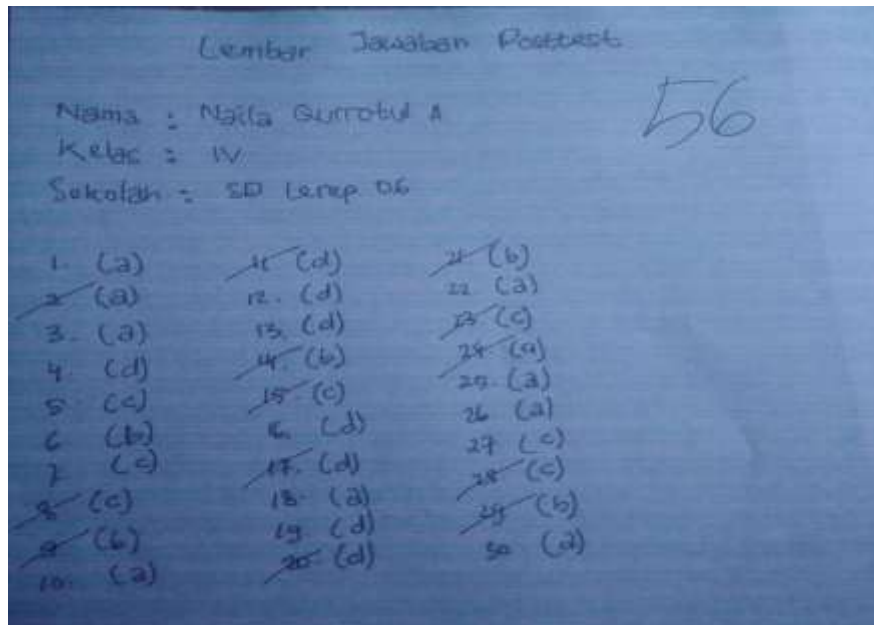 Lembar Jawaban Posttest
56
Nama : Naila Qurrotul A
Kelas : IV
Sekolah : SD Lerep 06
1. (a)
2. (a)
3. (a)
4. (d)
5. (c)
6 (b)
7 (c)
8 (c)
9 (b)
10. (a)
11 (d)
12. (d)
13. (d)
14. (b)
15. (c)
16. (d)
17. (d)
18. (a)
19. (d)
20. (d)
21 (b)
22 (a)
23 (c)
24. (a)
25. (a)
26 (a)
27 (c)
28 (c)
29 (b)
30 (a)